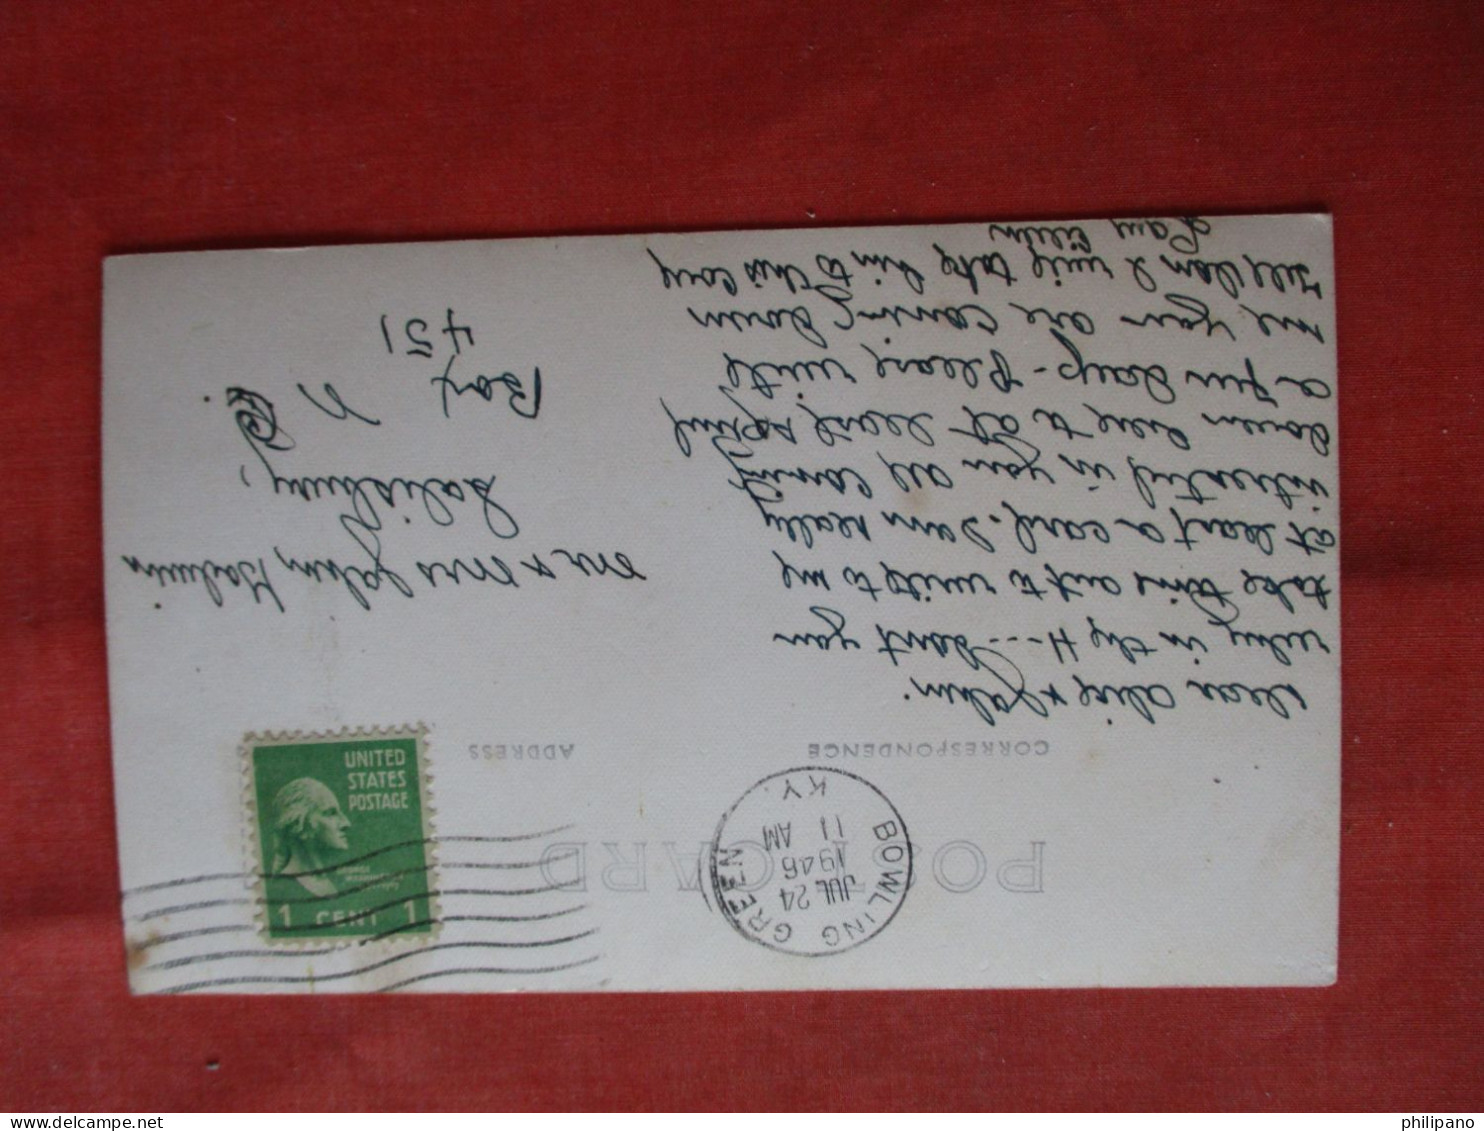 POST CARD
BOWLING GREEN
JUL 24
11 AM
1946
KY.
CORRESPONDENCE
ADDRESS
UNITED
STATES
POSTAGE
1 CENT 1
Dear Alice & John.
why in the H--- dont you
take time out to write to me
at least a card. I am really
interested in you all coming
down here to at least spend
a few days - Please write
me you are coming down
Tell Dan I will take him to this cave
Mr & Mrs John
Salisbury,
N C.
Box
451
philipano